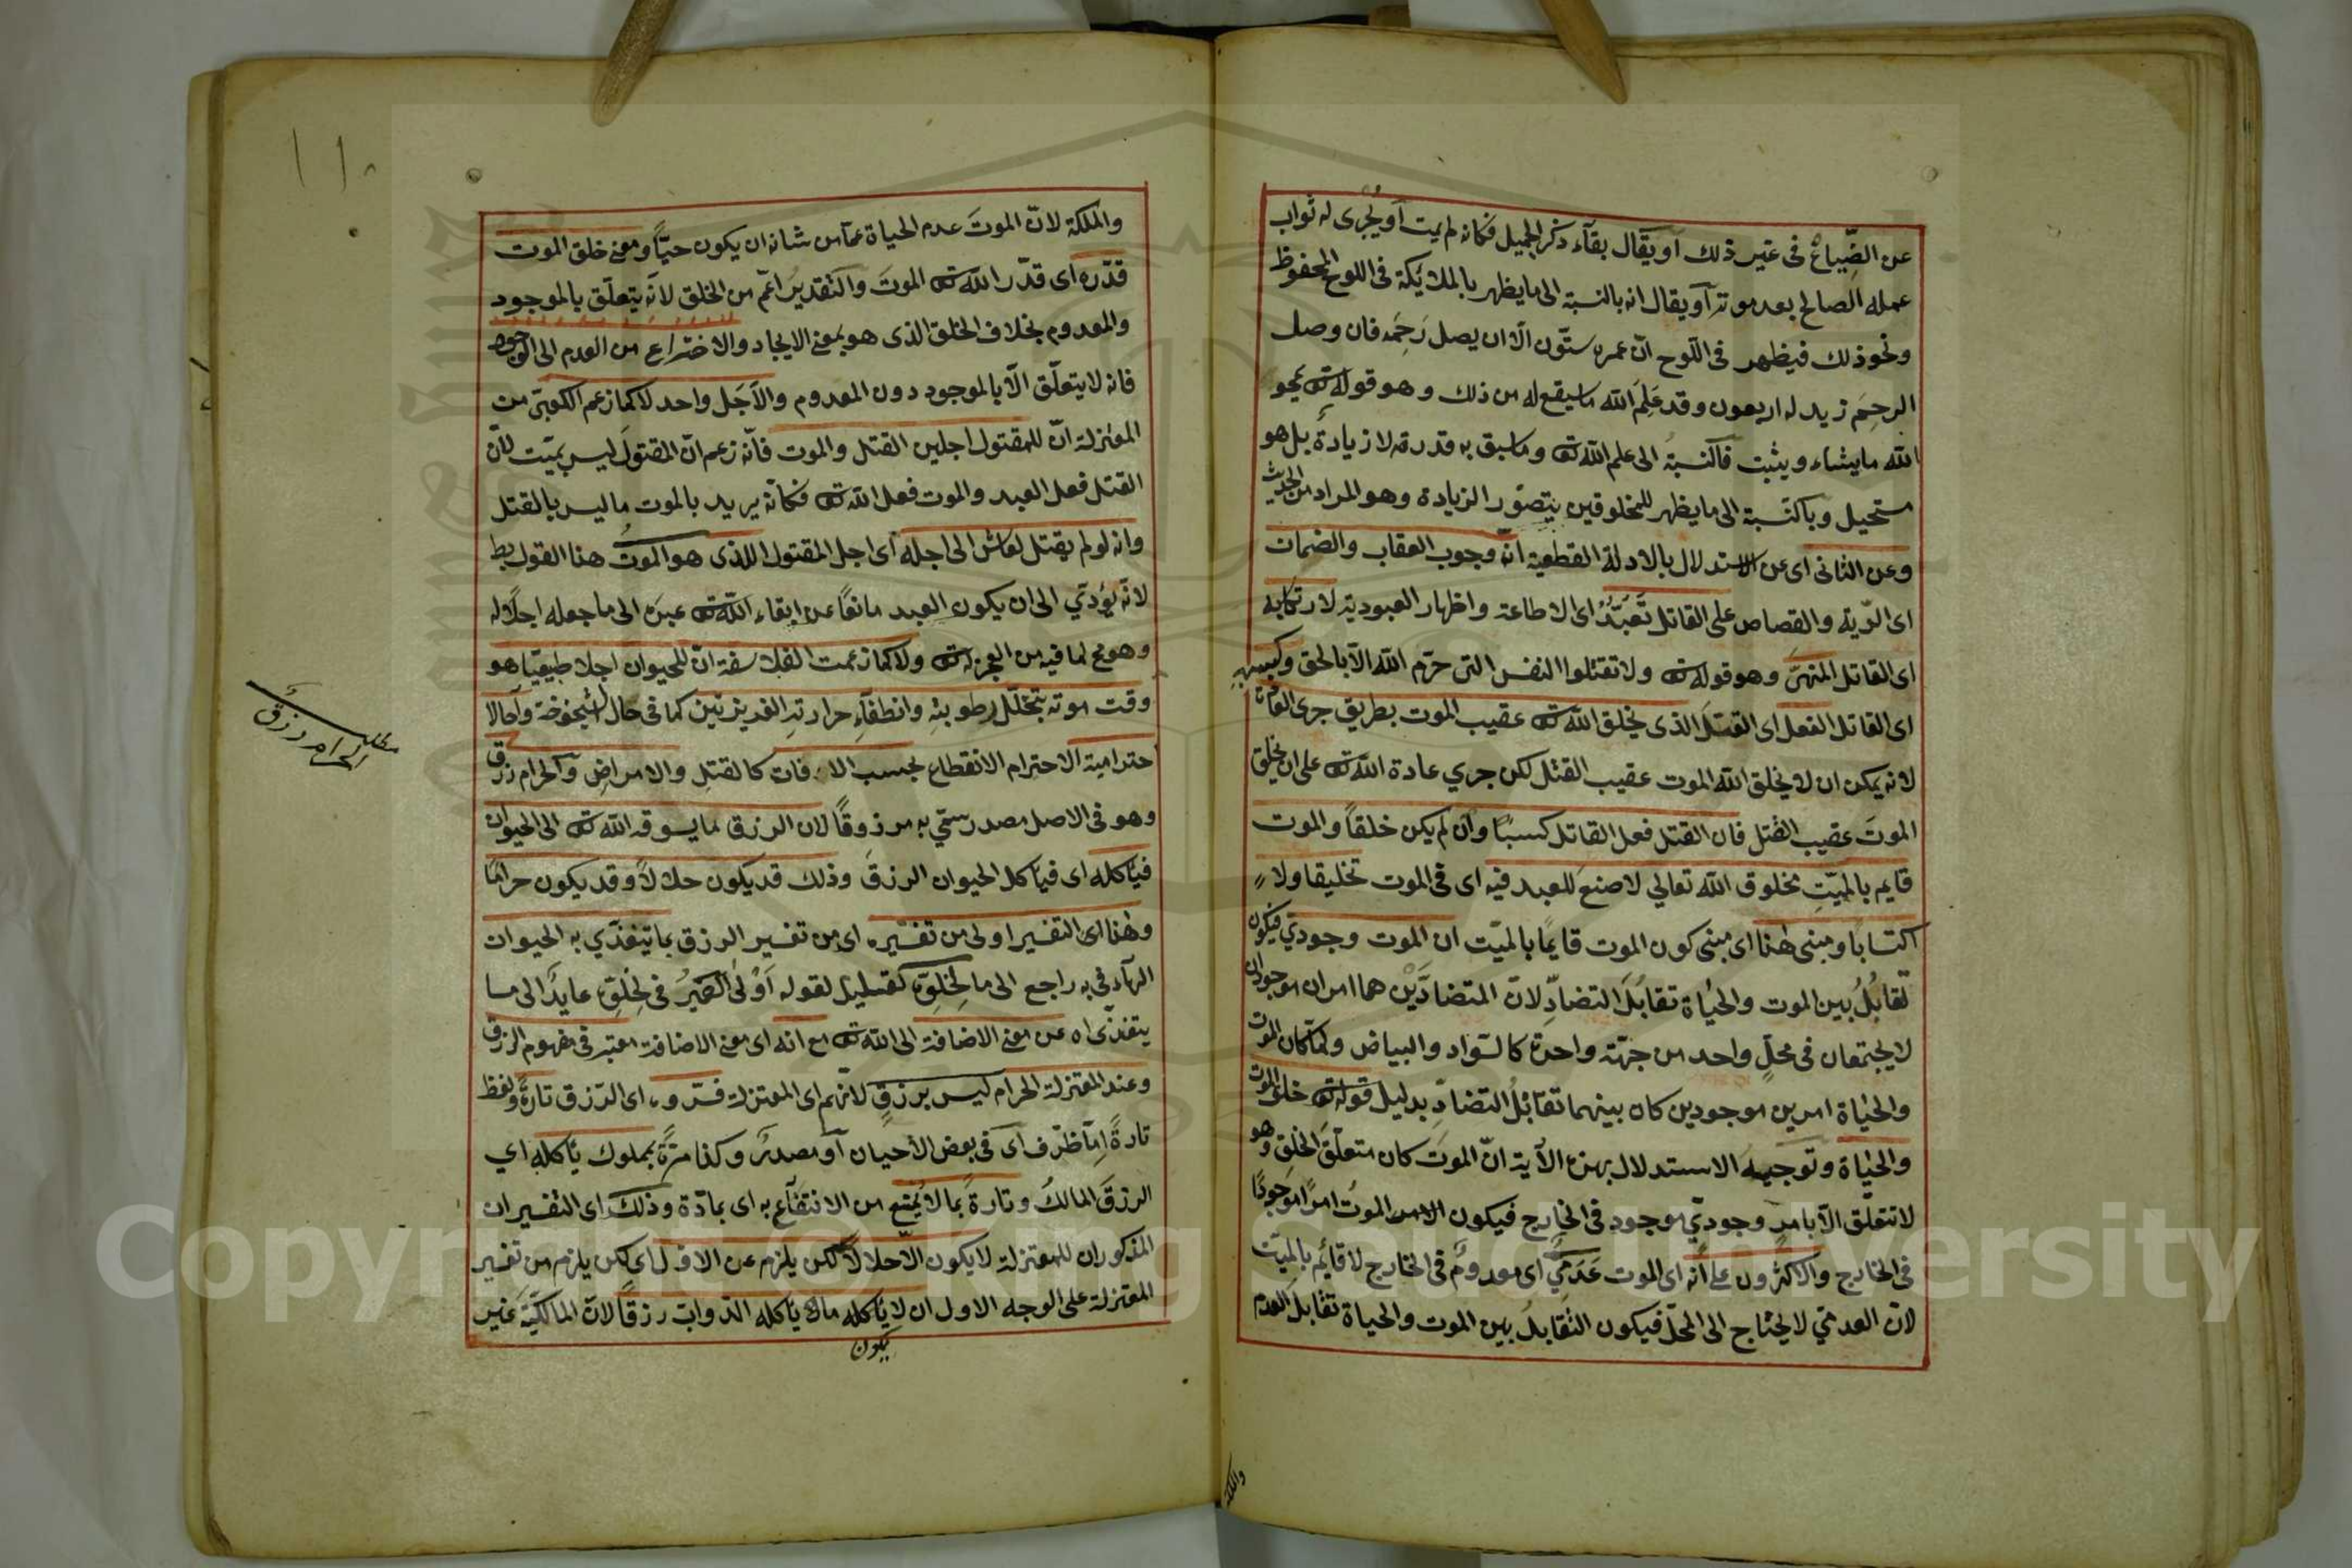 عن الضّياع فى غير ذلك او يقال بقاء ذكر الجميل فكانه لم يمت او يُجرى له ثواب
عمله الصالح بعد موته او يقال انه بالنسبة الى ما يظهر بالملائكة فى اللوح المحفوظ
ونحو ذلك فيظهر فى اللّوح انّ عمره ستّون الّا ان يصل رَحِمَه فان وصل
الرحِم زيد له اربعون وقد عَلِمَ الله ما سيقع له من ذلك وهو قوله ته يمحو
الله ما يشاء ويثبت فالنسبة الى علم الله ته وما سبق به قدرته لا زيادةً بل هو
مستحيل وبالنسبة الى ما يظهر للمخلوقين يتصوّر الزيادة وهو المراد من الحديث
وعن الثانى اى عن الاستدلال بالادلة القطعية انّ وجوب العقاب والضمان
اى الدّية والقصاص على القاتل تعبّدٌ اى الاطاعة واظهار العبودية لارتكابه
اى القاتل المنهىّ وهو قوله ته ولا تقتلوا النفس التى حرّم الله الّا بالحق وكسبه
اى القاتل الفعل اى القتلَ الذى يخلق الله ته عقيب الموت بطريق جرى العادة
لانه يمكن ان لا يخلق الله الموت عقيب القتل لكن جري عادة الله ته على ان يخلق
الموتَ عقيب القتل فان القتل فعل القاتل كسبًا وان لم يكن خلقاً والموت
قايم بالميّتِ مخلوق الله تعالي لا صنعَ للعبد فيه اى فى الموت تخليقا ولا
اكتسابا ومبنى هذا اى مبنى كون الموت قايمًا بالميّت ان الموت وجوديّ فيكون
تقابُلُ بين الموت والحيٰاة تقابُلَ التضادِّ لانّ المتضادَّيْن هما امران موجودان
لا يجتمعان فى محلٍّ واحد من جهة واحدة كالسّواد والبياض ولمّا كان الموت
والحيٰاة امرين موجودين كان بينهما تقابُلُ التضادِّ بدليل قوله ته خلق الموت
والحيٰاة وتوجيه الاستدلال بهذه الآية انّ الموتَ كان متعلّقَ الخلقِ وهو
لا تتعلّق الّا بامر وجوديّ موجود فى الخارج فيكون الامر الموتُ امرًا موجودًا
فى الخارج والاكثرون على انّه اى الموت عَدَميٌّ اى معدومٌ فى الخارج لا قائم بالميّت
لانّ العدميّ لا يحتاج الى المحلّ فيكون التقابلُ بين الموت والحياة تقابلَ العدم
والملكة
١١٠
والملكة لانّ الموتَ عدم الحياة عمّا من شانه ان يكون حيّاً ومعنى خلق الموت
قدّره اى قدّر الله ته الموتَ والتقديرُ اعّم من الخلق لانّه يتعلّق بالموجود
والمعدوم بخلاف الخلق الذى هو بمعنى الايجاد والاختراع من العدم الى الوجود
فانه لا يتعلّق الّا بالموجود دون المعدوم والاَجَل واحد لا كما زعم الكعبيّ من
المعتزلة انّ للمقتول اجلين القتل والموت فانّه زعم انّ المقتولَ ليس بميّت لانّ
القتل فعل العبد والموت فعل الله ته فكانّه يريد بالموت ما ليس بالقتل
وانه لو لم يقتل لعاش الى اجله اى اجل المقتول اللذى هو الموتُ هذا القول بط
لانّه يؤدّي الى ان يكون العبد مانعًا عن ابقاء الله ته عبدَه الى ما جعله اجلًا له
وهو مح لما فيه من العجز له ته ولا كما زعمت الفلاسفة انّ للحيوان اجلا طبيعيّا هو
وقت موته بتخلّل رطوبته وانطفآءِ حرارته الغديزيّتين كما فى حال الشيخوخة وآجالا
اخترامية الاخترام الانقطاع بحسب الافات كالقتلِ والامراضِ والحرام رزق
وهو فى الاصل مصدر سمّي به مرزوقًا لان الرزق لما يسوقه الله ته الى الحيوان
فيأكله اى فيأكل الحيوان الرزقَ وذلك قد يكون حلالًا وقد يكون حرامًا
وهذا اى التفسير اولى من تفسيره اى من تفسير الرزق بما يتغذّي به الحيوان
الهآء فى به راجع الى ما لخلوّه تعليل لقوله اَوْلى الضميرُ فى لخلوّه عايدًا الى ما
يتغذّى اه عن معنى الاضافة الى الله ته مع انه اى معنى الاضافة معتبر فى مفهوم الرزق
وعند المعتزلة الحرام ليس برزقٍ لانّهم اى المعتزلة فسّروه اى الرّزق تارةً ولفظ
تارةً امّا ظرف اى فى بعض الأحيان او مصدرٌ وكذا مرّةً بمملوك يأكله اي
الرزقَ المالكُ وتارةً بما لا يُمنع من الانتفاع به اى بمادّة وذلك اى التفسيران
المذكوران للمعتزلة لا يكون الّا حلالًا لكن يلزم عن الاوّل اى لكن يلزم من تفسير
المعتزلة على الوجه الاول ان لا يأكله ما يأكله الدّوابّ رزقًا لانّ المالكيّة غير
يكون
مطلب
الحرام رزقٌ
Copyright © King Saud University